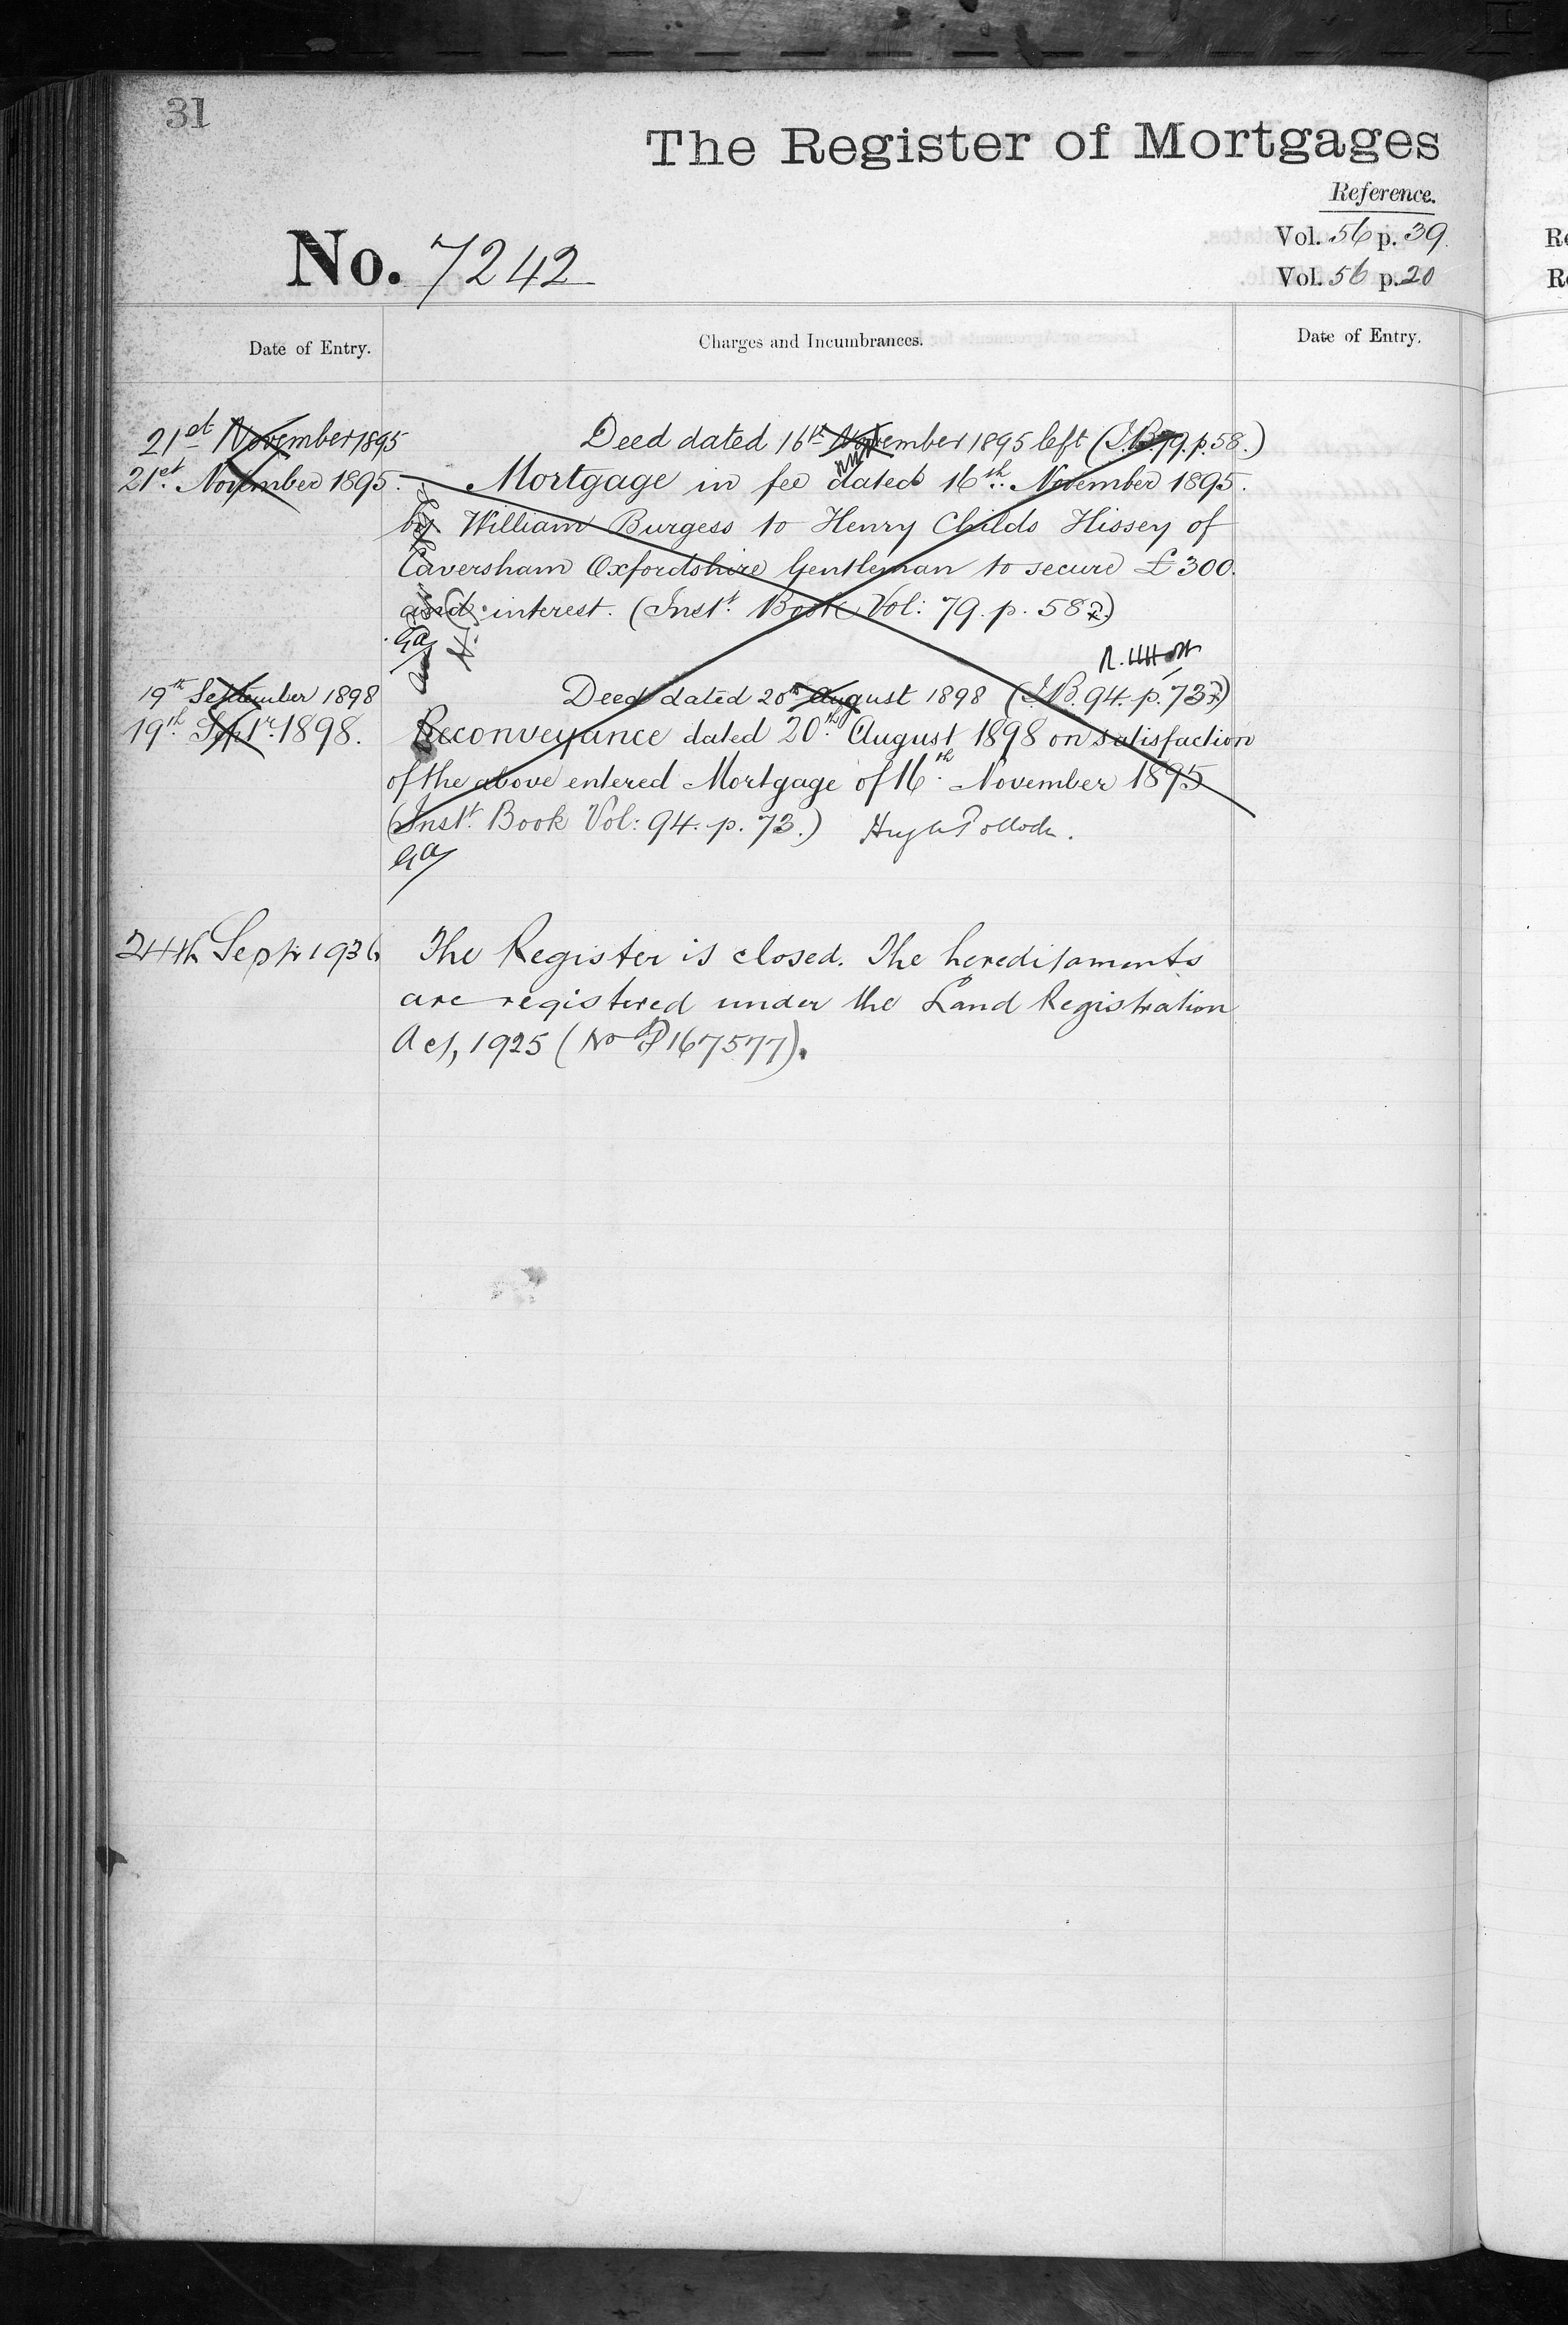 31
The Register of Mortgages
Reference.
No. 7242
Vol. 56 p. 39.
Vol. 56 p. 20
Date of Entry.
Charges and Incumbrances.
Date of Entry.
21st November 1895
Deed dated 16th November 1895 left (I.B. 79. p. 58.)
21st. November 1895.
Mortgage in fee dated 16th. November 1895.
by William Burgess to Henry Childs Hissey of
Caversham Oxfordshire Gentleman to secure £300.
and interest. (Inst. Book Vol: 79. p. 58.)
19th September 1898
Deed dated 20th August 1898 (I.B. 94. p. 73)
19th. Septr. 1898.
Reconveyance dated 20th. August 1898 on satisfaction
of the above entered Mortgage of 16th. November 1895
(Inst. Book Vol: 94. p. 73.) Hugh Pollock.
24th Septr 1936
The Register is closed. The hereditaments
are registered under the Land Registration
Act, 1925 (No P167577).